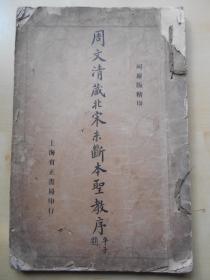 珂羅版精印
周文清藏北宋未斷本聖教序
上海有正書局印行